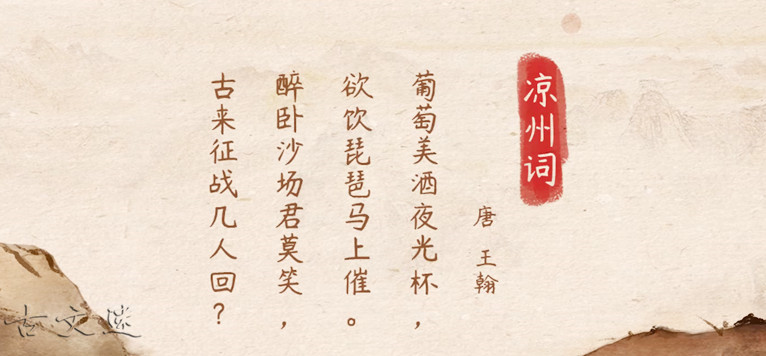 凉州词
唐 王翰
葡萄美酒夜光杯，
欲饮琵琶马上催。
醉卧沙场君莫笑，
古来征战几人回？
古文迷